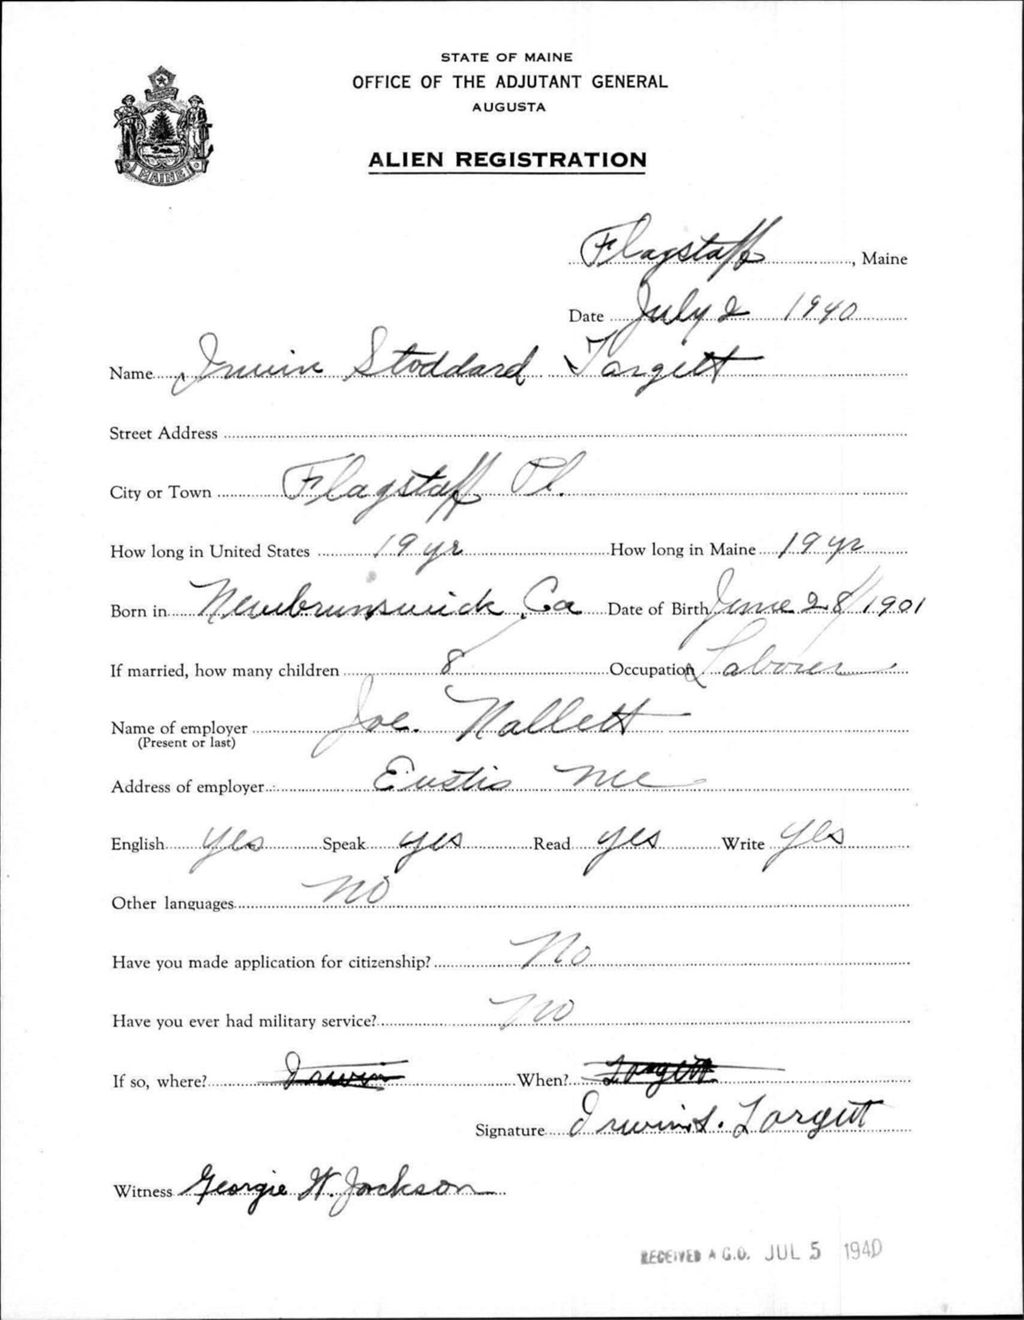 STATE OF MAINE
OFFICE OF THE ADJUTANT GENERAL
AUGUSTA
ALIEN REGISTRATION
MAINE
Flagstaff, Maine
Date July 2 1940
Name Irwin Stoddard Targett
Street Address
City or Town Flagstaff Pl.
How long in United States 19 yr How long in Maine 19 yr
Born in Newbrunswick, Ca Date of Birth June 28/1901
If married, how many children 8 Occupation Laborer
Name of employer Joe. Nallett
(Present or last)
Address of employer Eustis Me
English yes Speak yes Read yes Write yes
Other languages no
Have you made application for citizenship? No
Have you ever had military service? no
If so, where? Irwin When? Targett
Signature Irwin S. Targett
Witness Georgie W. Jackson
RECEIVED A.G.O. JUL 5 1940